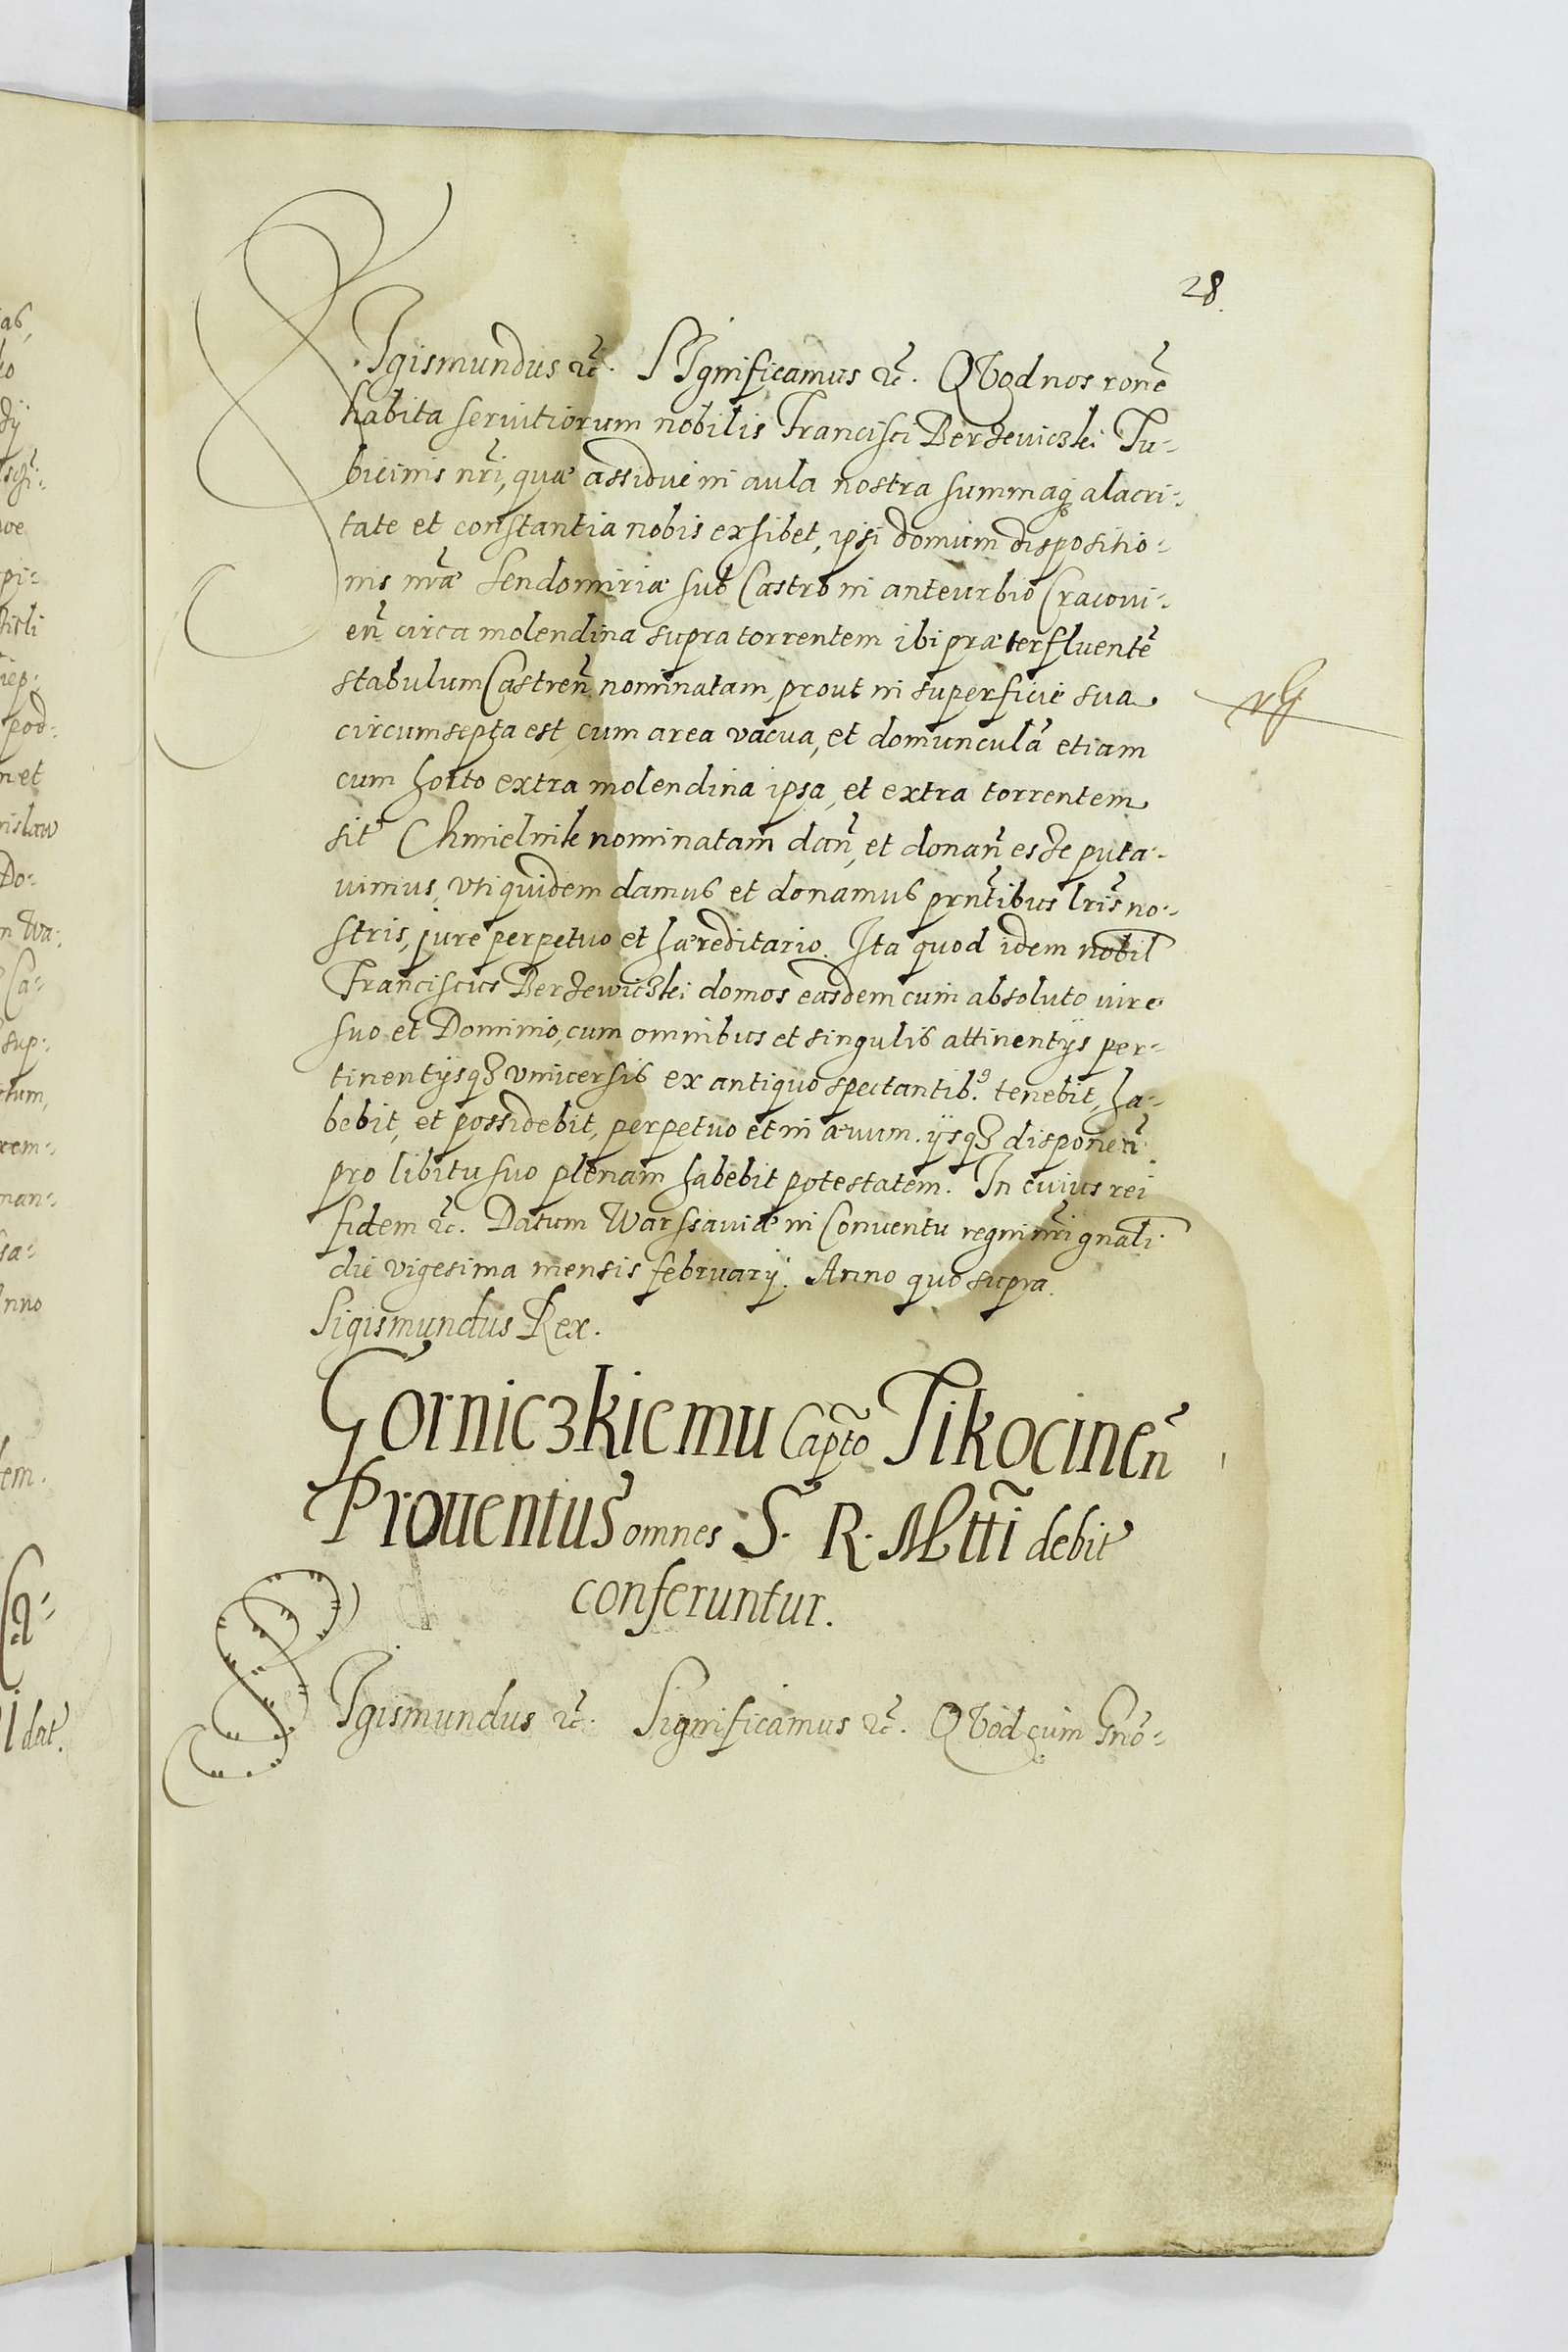 28.
SIgismundus &c. SIgnificamus &c. QVod nos ronē
habita seruitiorum nobilis Francisci Berzewiczki Tu-
bicinis nr̃i, quæ assidue in aula nostra summaq̃ alacri-
tate et constantia nobis exhibet, ipsi domum dispositio-
nis nr̃æ Sendomiriæ sub Castro in anteurbio Cracoui-
eñ circa molendina supra torrentem ibi præterfluentẽ
stabulum Castreñ nominatam, prout in superficie sua
circumsepta est, cum area vacua, et domuncula etiam
cum horto extra molendina ipsa, et extra torrentem
sit̃ Chmielnik nominatam dañ, et donañ esse puta-
uimus, vti quidem damus et donamus prñtibus lr̃is no-
stris, jure perpetuo et hæreditario. Ita quod idem nobil
Franciscus Berzewiczki domos easdem cum absoluto iure
suo et Dominio, cum omnibus et singulis attinentijs per-
tinentijsqʒ vniuersis ex antiquo spectantib9. tenebit, ha-
bebit, et possidebit, perpetuo et in æuum. ijsqʒ disponeñ
pro libitu suo plenam habebit potestatem. In cuius rei
fidem &c. Datum Warssauiæ in Conuentu regni nr̃i gnali
die vigesima mensis february. Anno quo supra.
Sigismundus Rex.
Gorniczkiemu Capto Tikocineñ
Prouentus omnes S. R. Mtti debit
conferuntur.
SIgismundus &c. Significamus &c. QVod cum Gnõ-